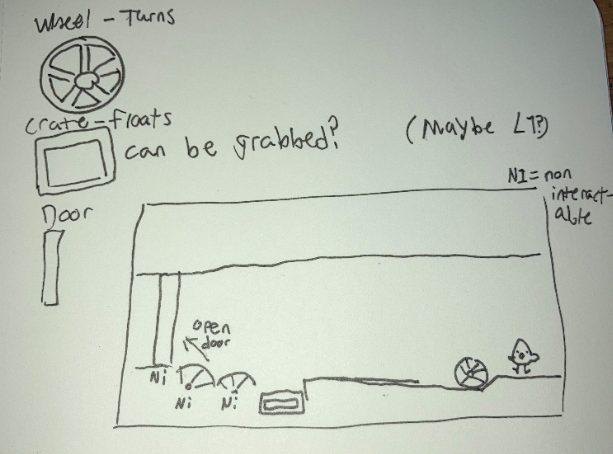 Wheel - Turns
Crate - Floats
can be grabbed?
(Maybe LT?)
NI = non
interact-
able
Door
open
door
Ni
Ni
Ni